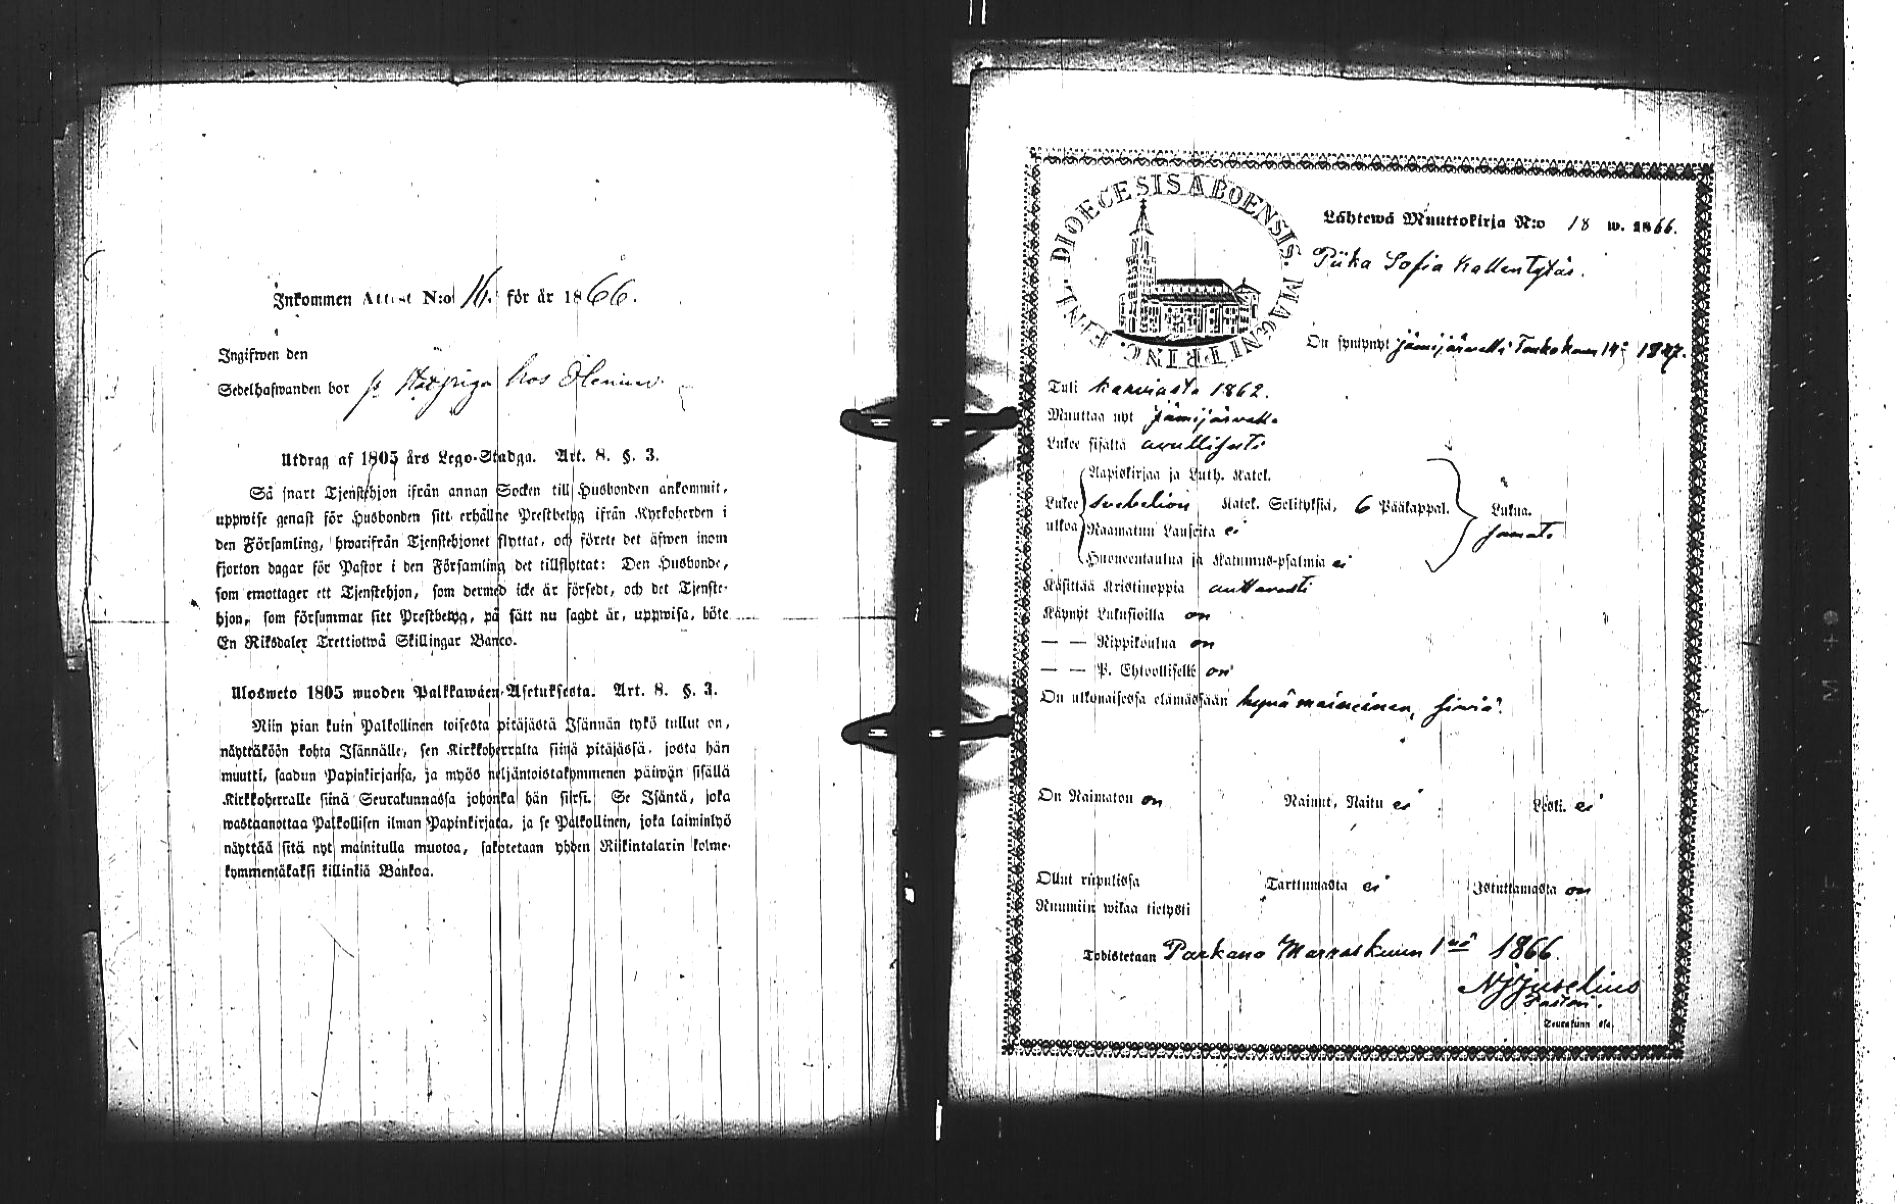 Inkommen Attest N:o 16. för år 1866.
Ingifwen den
Sedelhafwanden bor
Utdrag af 1805 års Lego-Stadga. Art. 8. §. 3.
Så snart Tjenstehjon ifrån annan Socken till Husbonden ankommit,
uppwise genast för Husbonden sitt erhållne Prestbetyg ifrån Kyrkoherden i
den Församling, hwarifrån Tjenstehjonet flyttat, och förete det äfwen inom
fjorton dagar för Pastor i den Församling det tillflyttat: Den Husbonde,
som emottager ett Tjenstehjon, som dermed icke är försedt, och det Tjenste-
hjon, som försummar sitt Prestbetyg, på sätt nu sagdt är, uppwisa, böte
En Riksdaler Trettiotwå Skillingar Banco.
Ulosweto 1805 wuoden Palkkawäen-Asetuksesta. Art. 8. §. 3.
Niin pian kuin Palkollinen toisesta pitäjästä Isännän tykö tullut on,
näyttäköön kohta Isännälle, sen Kirkkoherralta siinä pitäjässä, josta hän
muutti, saadun Papinkirjansa, ja myös neljäntoistakymmenen päiwän sisällä
Kirkkoherralle siinä Seurakunnassa johonka hän siirsi. Se Isäntä, joka
wastaanottaa Palkollisen ilman Papinkirjata, ja se Palkollinen, joka laiminlyö
näyttää sitä nyt mainitulla muotoa, sakotetaan yhden Riikintalarin kolme-
kymmentäkaksi killinkiä Bankoa.
DIOECESIS ABOENSIS. MAGNI PRINC. FINL.
Lähtewä Muuttokirja N:o 18 w. 1866.
Piika Sofia Kallentytär.
On syntynyt Jämijärwellä Toukokuun 14 1847.
Tuli Karwiasta 1862.
Muuttaa nyt Jämijärwelle
Lukee sisältä awullisesti
Aapiskirjaa ja Luth. Katek.
Lukee ulkoa Svebelion Katek. Selityksiä, 6 Pääkappal. Lukua.
Raamatun Lauseita ei
Huoneentaulua ja Katumus-psalmia ei
Käsittää Kristinoppia auttawasti
Käynyt Lukusioilla on
— — Rippikoulua on
— — P. Ehtoollisella on
On ulkonaisessa elämässään hywämaineinen, siwiä.
On Naimaton on Nainut, Naitu ei Leski. ei
Ollut rupulissa Tarttumasta ei Istuttamasta on
Ruumiin wikaa tietysti
Todistetaan Parkano Marraskuun 1nä 1866.
N J Juselius
Pastori.
Seurakunn ssa.